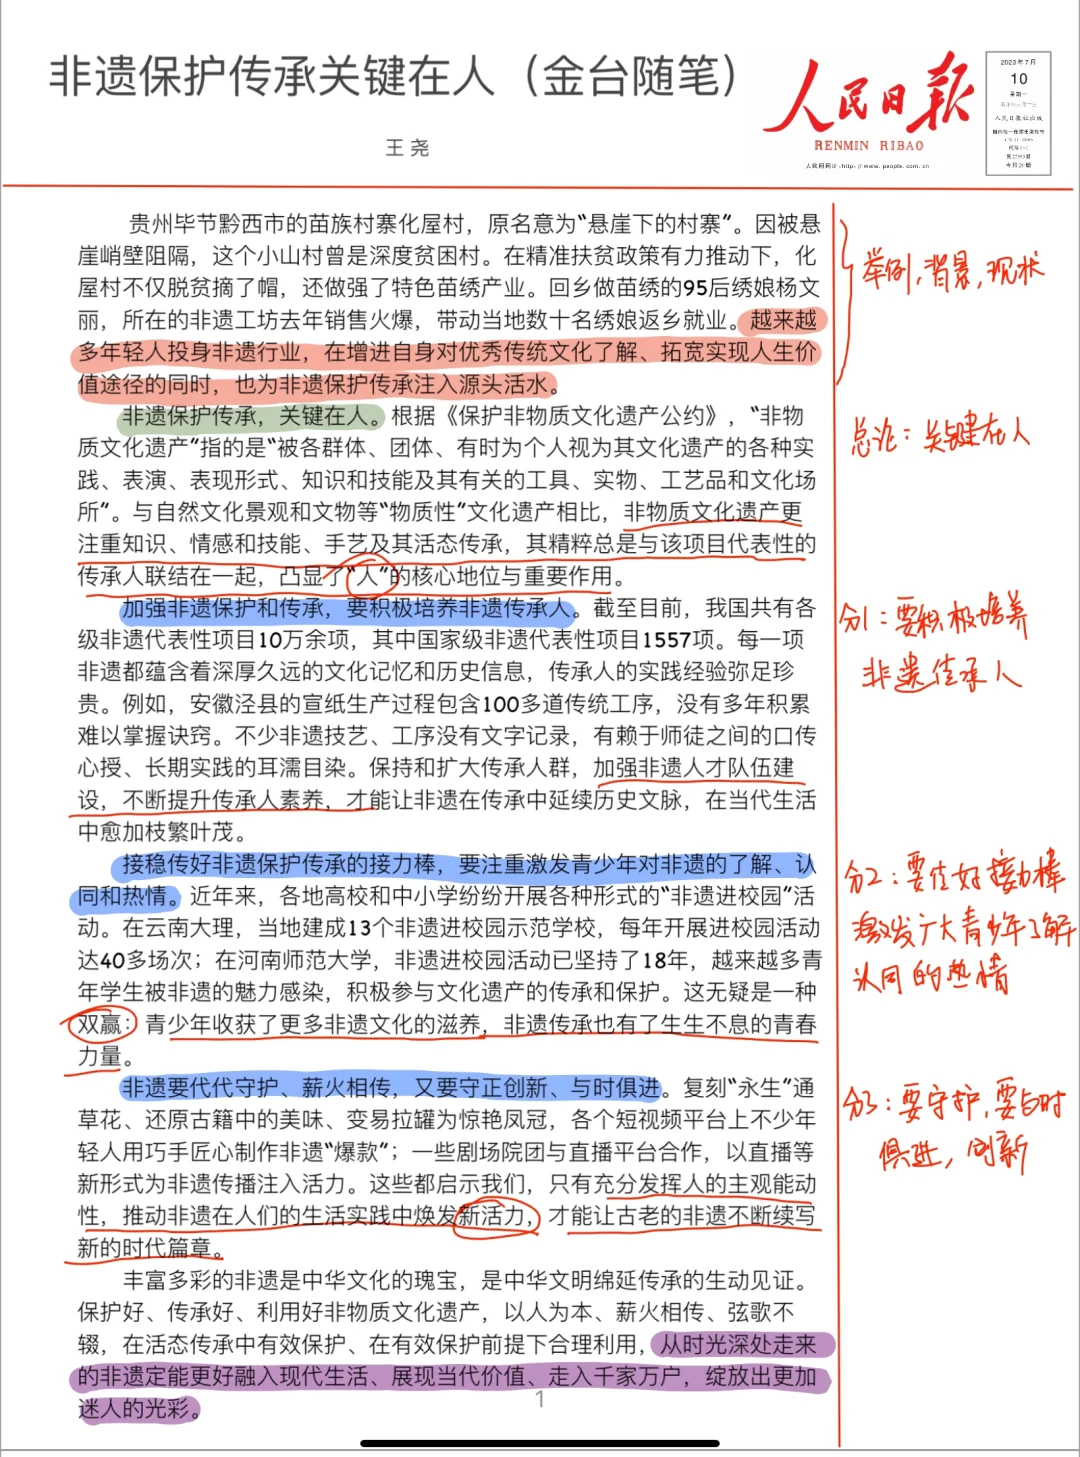 非遗保护传承关键在人（金台随笔）
王 尧
人民日报
RENMIN RIBAO
人民网网址:http://www.people.com.cn
2023年7月
10
星期一
人民日报社出版
今日20版
贵州毕节黔西市的苗族村寨化屋村，原名意为“悬崖下的村寨”。因被悬
崖峭壁阻隔，这个小山村曾是深度贫困村。在精准扶贫政策有力推动下，化
屋村不仅脱贫摘了帽，还做强了特色苗绣产业。回乡做苗绣的95后绣娘杨文
丽，所在的非遗工坊去年销售火爆，带动当地数十名绣娘返乡就业。越来越
多年轻人投身非遗行业，在增进自身对优秀传统文化了解、拓宽实现人生价
值途径的同时，也为非遗保护传承注入源头活水。
举例,背景,现状
非遗保护传承，关键在人。根据《保护非物质文化遗产公约》，“非物
质文化遗产”指的是“被各群体、团体、有时为个人视为其文化遗产的各种实
践、表演、表现形式、知识和技能及其有关的工具、实物、工艺品和文化场
所”。与自然文化景观和文物等“物质性”文化遗产相比，非物质文化遗产更
注重知识、情感和技能、手艺及其活态传承，其精粹总是与该项目代表性的
传承人联结在一起，凸显了“人”的核心地位与重要作用。
总论：关键在人
加强非遗保护和传承，要积极培养非遗传承人。截至目前，我国共有各
级非遗代表性项目10万余项，其中国家级非遗代表性项目1557项。每一项
非遗都蕴含着深厚久远的文化记忆和历史信息，传承人的实践经验弥足珍
贵。例如，安徽泾县的宣纸生产过程包含100多道传统工序，没有多年积累
难以掌握诀窍。不少非遗技艺、工序没有文字记录，有赖于师徒之间的口传
心授、长期实践的耳濡目染。保持和扩大传承人群，加强非遗人才队伍建
设，不断提升传承人素养，才能让非遗在传承中延续历史文脉，在当代生活
中愈加枝繁叶茂。
分1：要积极培养
非遗传承人
接稳传好非遗保护传承的接力棒，要注重激发青少年对非遗的了解、认
同和热情。近年来，各地高校和中小学纷纷开展各种形式的“非遗进校园”活
动。在云南大理，当地建成13个非遗进校园示范学校，每年开展进校园活动
达40多场次；在河南师范大学，非遗进校园活动已坚持了18年，越来越多青
年学生被非遗的魅力感染，积极参与文化遗产的传承和保护。这无疑是一种
双赢：青少年收获了更多非遗文化的滋养，非遗传承也有了生生不息的青春
力量。
分2：要传好接力棒
激发广大青少年了解
认同的热情
非遗要代代守护、薪火相传，又要守正创新、与时俱进。复刻“永生”通
草花、还原古籍中的美味、变易拉罐为惊艳凤冠，各个短视频平台上不少年
轻人用巧手匠心制作非遗“爆款”；一些剧场院团与直播平台合作，以直播等
新形式为非遗传播注入活力。这些都启示我们，只有充分发挥人的主观能动
性，推动非遗在人们的生活实践中焕发新活力，才能让古老的非遗不断续写
新的时代篇章。
分3：要守护,要与时
俱进,创新
丰富多彩的非遗是中华文化的瑰宝，是中华文明绵延传承的生动见证。
保护好、传承好、利用好非物质文化遗产，以人为本、薪火相传、弦歌不
辍，在活态传承中有效保护、在有效保护前提下合理利用，从时光深处走来
的非遗定能更好融入现代生活、展现当代价值、走入千家万户，绽放出更加
迷人的光彩。
1